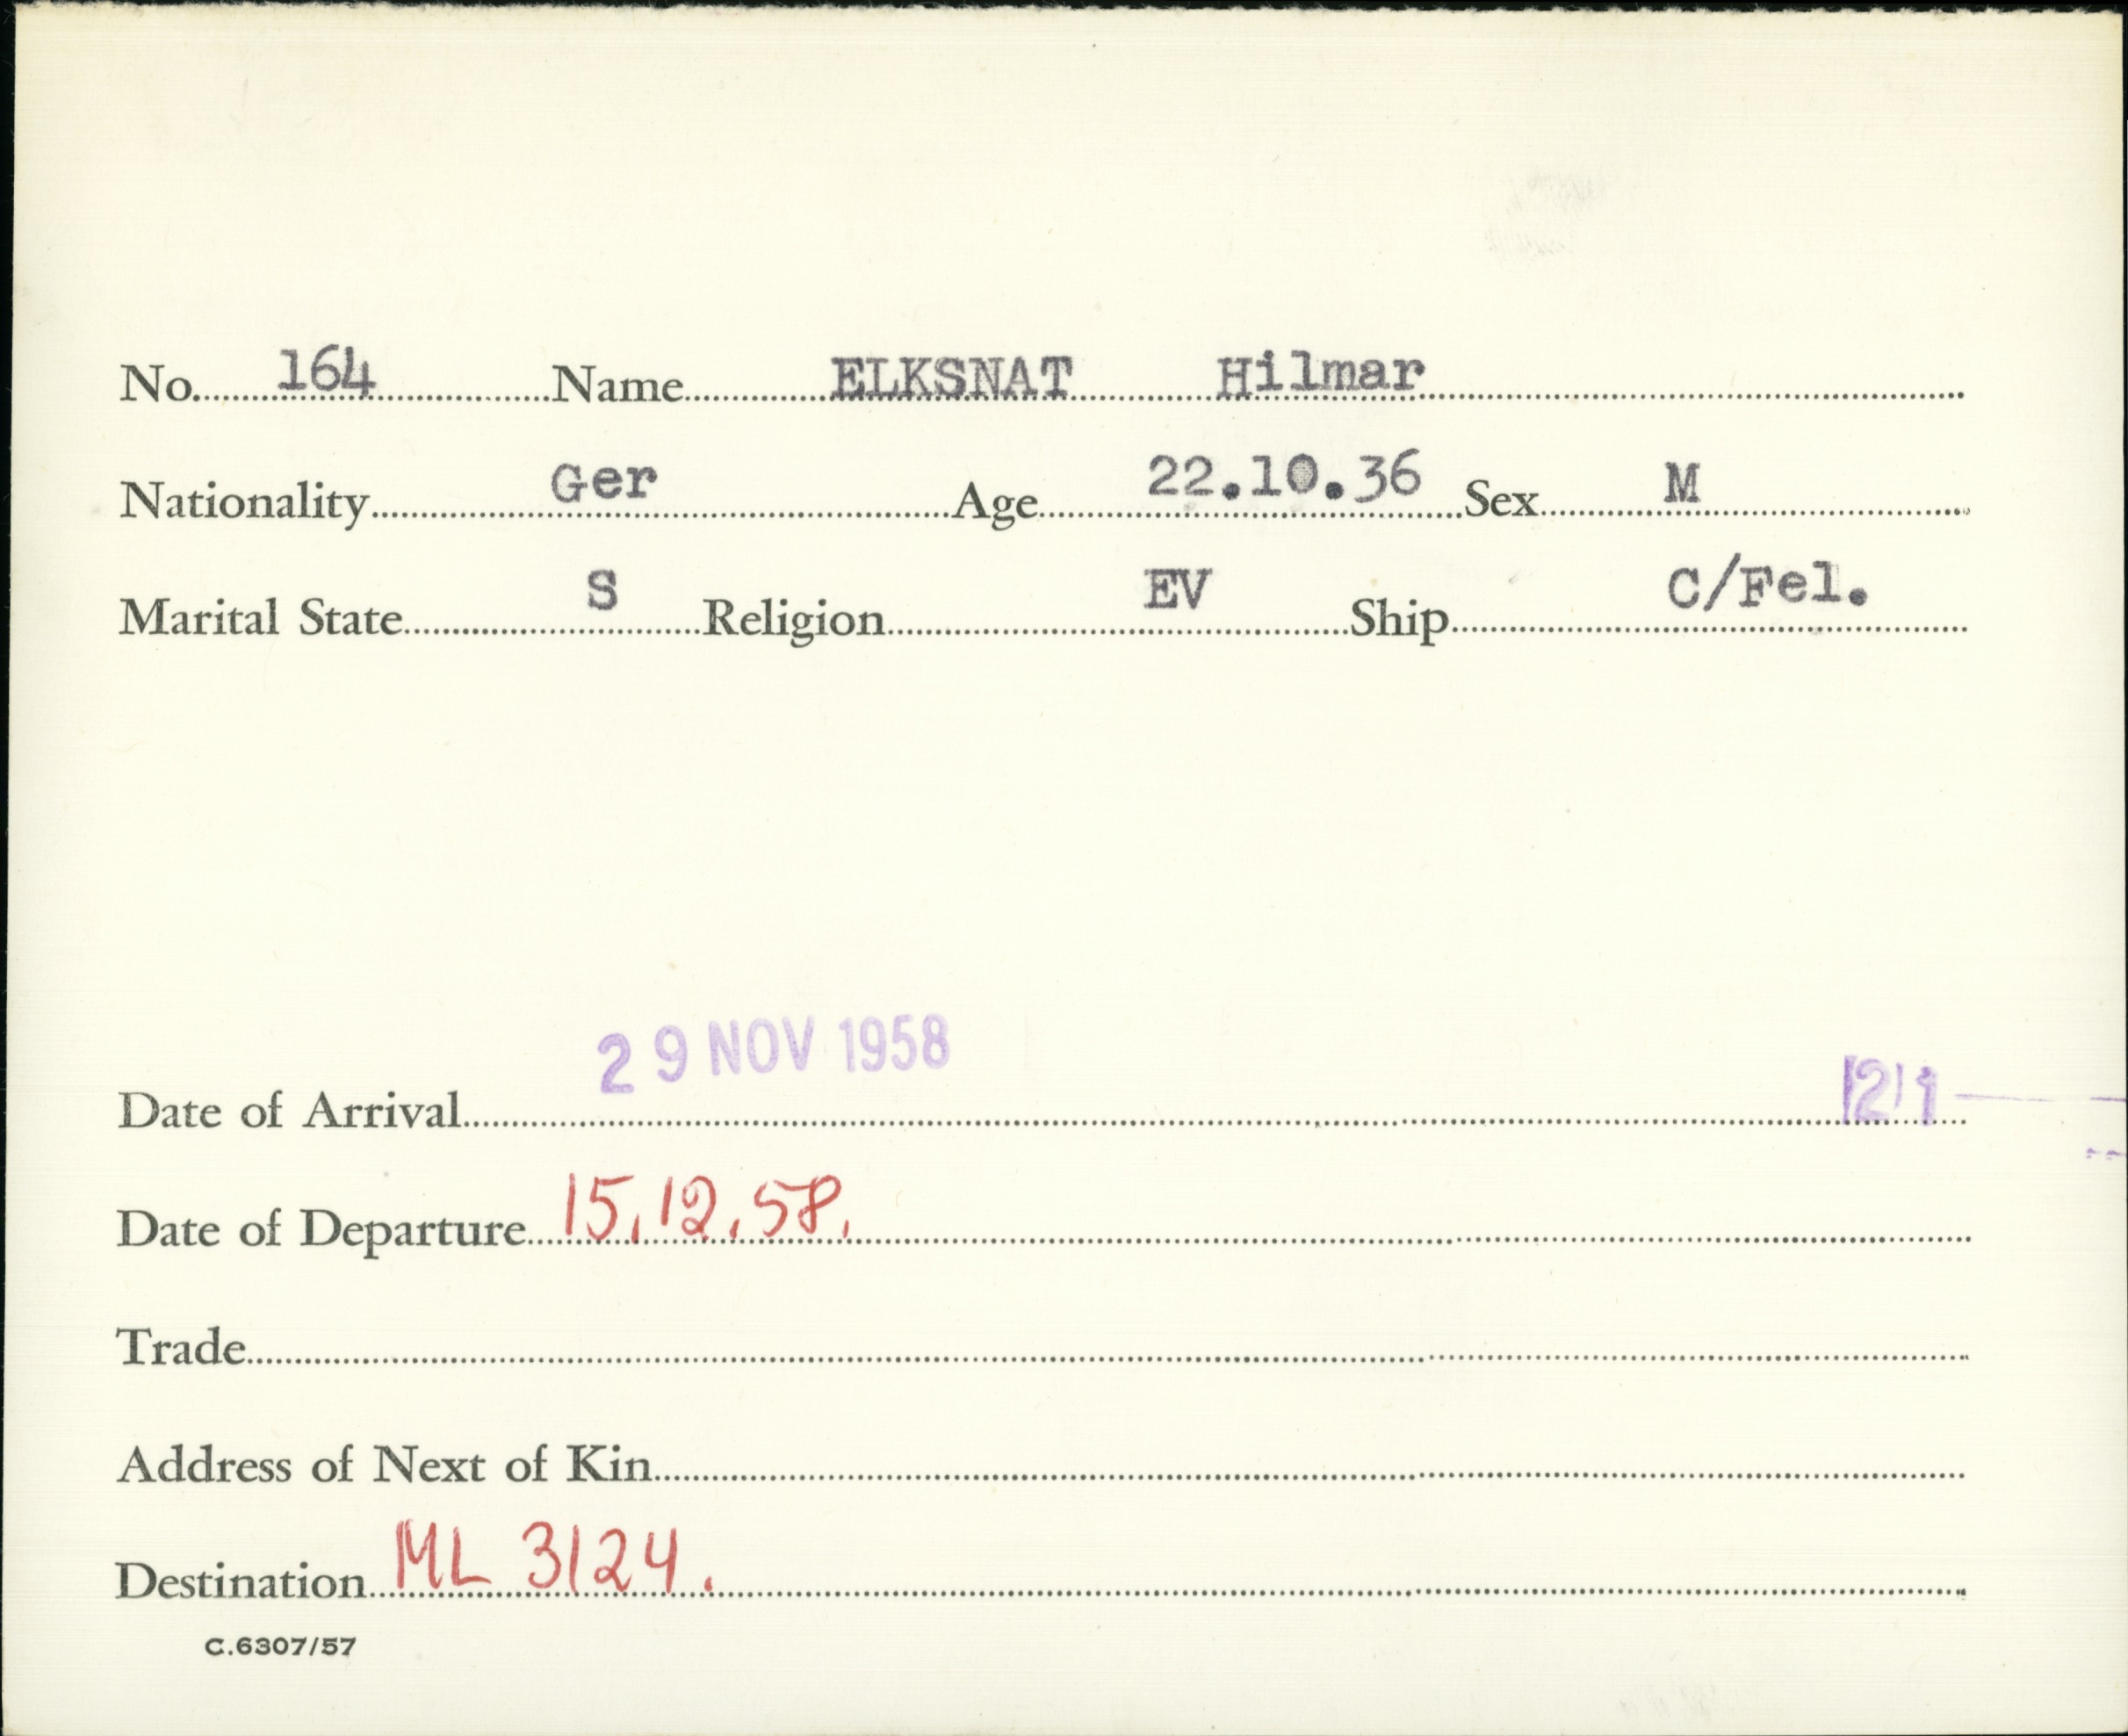 No. 164 Name ELKSNAT Hilmar
Nationality Ger Age 22.10.36 Sex M
Marital State S Religion EV Ship C/Fel.
29 NOV 1958
Date of Arrival
Date of Departure 15.12.58.
Trade
Address of Next of Kin
Destination ML 3124.
C.6307/57